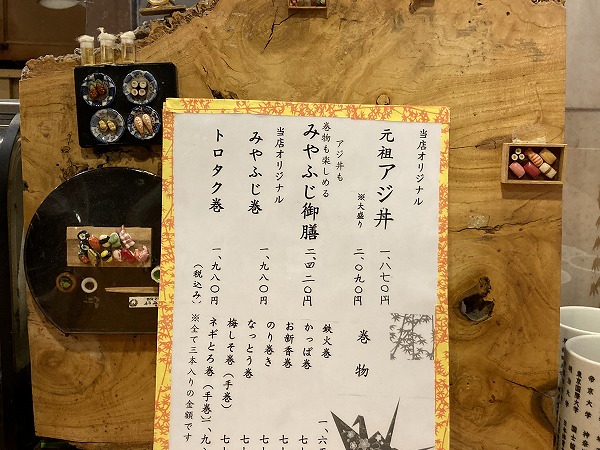 当店オリジナル
元祖アジ丼 一、八七〇円
※大盛り 二、〇九〇円
アジ丼も
巻物も楽しめる
みやふじ御膳 二、四二〇円
当店オリジナル
みやふじ巻 一、九八〇円
トロタク巻 一、九八〇円
（税込み）
巻物
鉄火巻 一、六
かっぱ巻 七
お新香巻 七
のり巻き 七
なっとう巻 七
梅しそ巻（手巻） 七
ネギとろ巻（手巻）一、九
※全て三本入りの金額です
帝京大学 神奈
東京国際大学 国士舘
明治大学